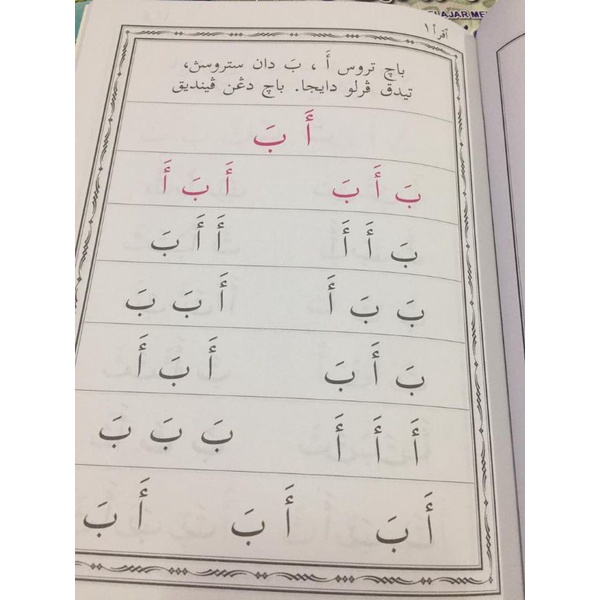 NAJAR ME
اقرأ ١
باچ تروس أَ ، بَ دان ستروسڽ،
تيدق ڤرلو دايجا. باچ دڠن ڤينديق
أَ بَ
بَ أَ بَ أَ بَ أَ
بَ أَ أَ أَ أَ بَ
بَ بَ أَ أَ بَ بَ
بَ أَ بَ أَ بَ أَ
أَ أَ أَ بَ بَ بَ
أَ بَ أَ بَ أَ بَ